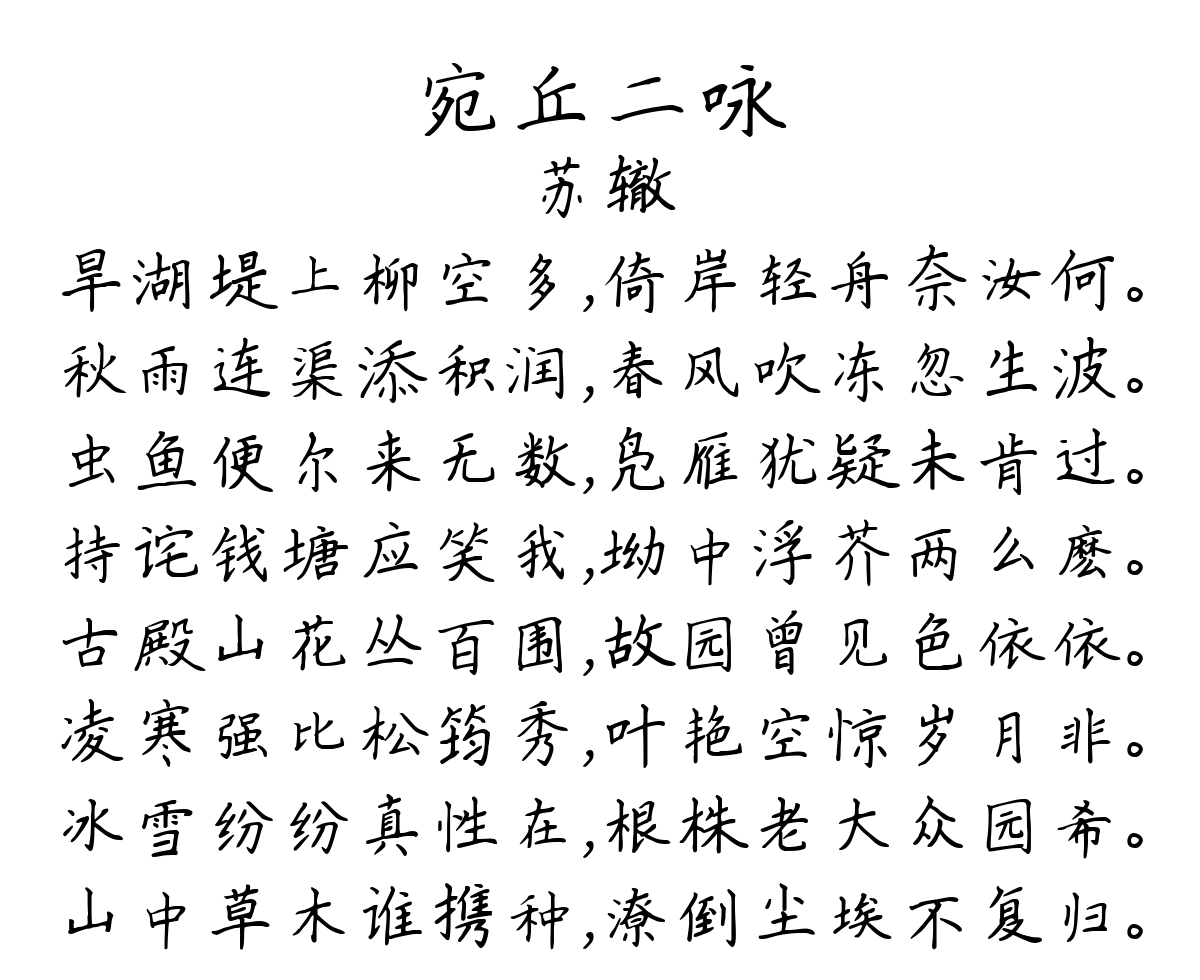 宛丘二咏
苏辙
旱湖堤上柳空多,倚岸轻舟奈汝何。
秋雨连渠添积润,春风吹冻忽生波。
虫鱼便尔来无数,凫雁犹疑未肯过。
持诧钱塘应笑我,坳中浮芥两么麽。
古殿山花丛百围,故园曾见色依依。
凌寒强比松筠秀,叶艳空惊岁月非。
冰雪纷纷真性在,根株老大众园希。
山中草木谁携种,潦倒尘埃不复归。